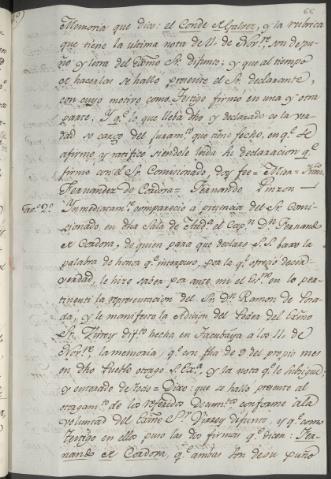 66
Memoria que dice: el Conde de Galvez, y la rubrica
que tiene la ultima nota de 11. de Nov.re son de pu-
ño y letra del Exmo Sr. difunto; y que al tiempo
de hacerlas se halló presente el Sr. declarante,
con cuyo motivo como Testigo firmó en una y otra
parte. Y q.e lo que lleba dho y declarado es la ver-
dad so cargo del Juram.to que tiene fecho, en q.e se
afirmó, y ratificó siendole leida su declaracion q.e
firmó con el Sr. Comisionado, doy fee =
Fernandez de Cordova = Fernando Pinzon
Tgo. 2.o Inmediatam.te compareció a presencia del Sr. Comi-
sionado en dha Sala de el Cap.n Dn. Fernando
de Cordova, de quien para que declare S.S. baxo la
palabra de honor q.e interpuso, por la q.e ofreció decir
verdad, le hizo saber por ante mi el Es.no en lo per-
tinente la representacion del Sr. Dn. Ramon de Posa-
da, y le manifestó la Adicion del Poder del Exmo
Sr. Virrey dif.to hecha en Tacubaya a los 11. de
Nov.re la memoria, q.e con fha de 9 del propio mes
en dho Pueblo otorgó S. Exa., y la nota q.e le subsigue,
y enterado de todo = Dixo: que se halló presente al
otorgam.to de los referidos Docum.tos conforme a la
voluntad del Exmo Sr. Virrey difunto, y q.e como
testigo en ellos puso las dos firmas q.e dicen: Fer-
nando de Cordova, q.e ambas son de su puño